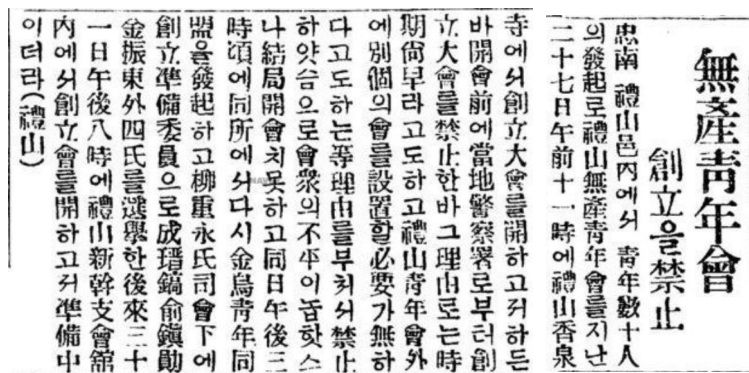 無產靑年會
創立을禁止
忠南 禮山邑內에서 靑年數十人
의發起로禮山無產靑年會를지난
二十七日午前十一時에禮山香泉
寺에서創立大會를開하고저하든
바開會前에當地警察署로부터創
立大會를禁止한바그理由로는時
期尙早라고도하고禮山靑年會外
에別個의會를設置할必要가無하
다고도하는等理由를부처서禁止
하얏슴으로會衆의不平이놉핫스
나結局開會치못하고同日午後三
時頃에同所에서다시金烏靑年同
盟을發起하고柳重永氏司會下에
創立準備委員으로成瑨鎬俞鎭勛
金振東外四氏를選擧한後來三十
一日午後八時에禮山新幹支會舘
內에서創立會를開하고저準備中
이더라(禮山)